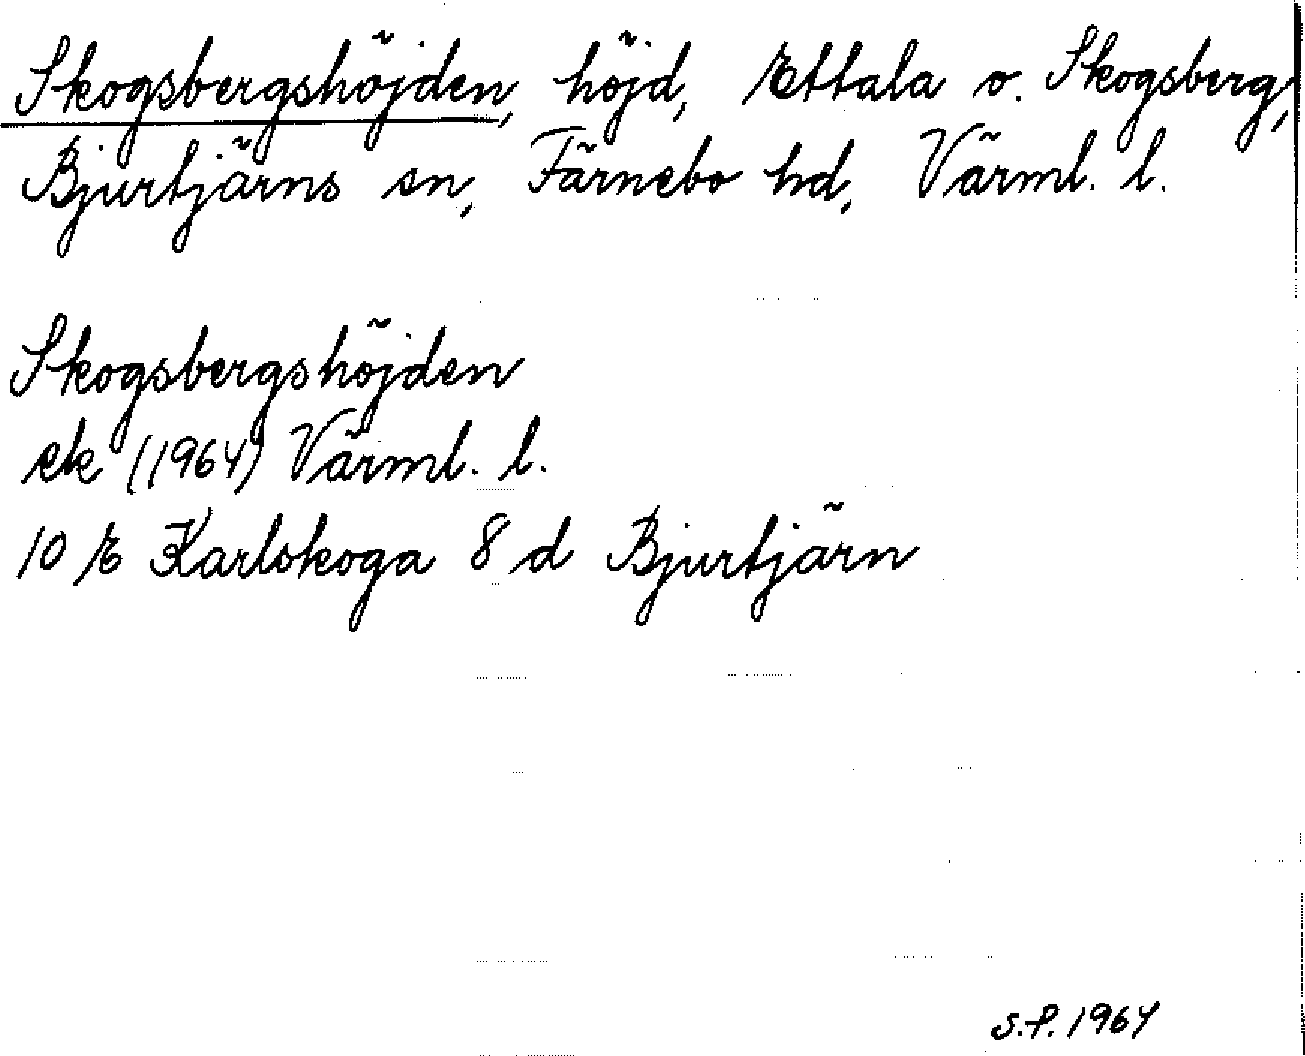 Skogsbergshöjden, höjd, Ettala o. Skogsberg,
Bjurtjärns sn, Färnebo hd, Värml. l.
Skogsbergshöjden
ek (1964) Värml. l.
10 E Karlskoga 8 d Bjurtjärn
S.P. 1964